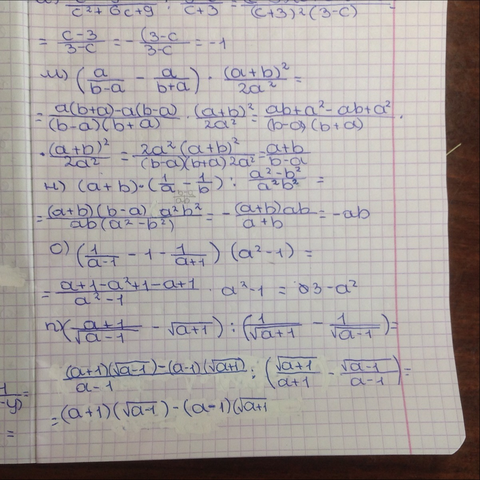 c²+6c+9 : c+3 = (c+3)²(3-c)
= c-3/3-c = -(3-c/3-c = -1
м) (a/b-a - a/b+a) · (a+b)²/2a² =
= a(b+a)-a(b-a)/(b-a)(b+a) · (a+b)²/2a² = ab+a²-ab+a²/(b-a)(b+a) ·
· (a+b)²/2a² = 2a²(a+b)²/(b-a)(b+a)2a² = a+b/b-a
н) (a+b)·(1/a - 1/b) : a²-b²/a²b² =
= (a+b)(b-a) a²b²/ab(a²-b²) = -(a+b)ab/a+b = -ab
о) (1/a-1 - 1 - 1/a+1) (a²-1) =
= a+1-a²+1-a+1/a²-1 · a²-1 = 3-a²
п) (a+1/√a-1 - √a+1) : (1/√a+1 - 1/√a-1) =
(a+1)(√a-1)-(a-1)(√a+1)/a-1 : (√a+1/a+1 - √a-1/a-1) =
= (a+1)(√a-1) - (a-1)(√a+1
-y) =
=